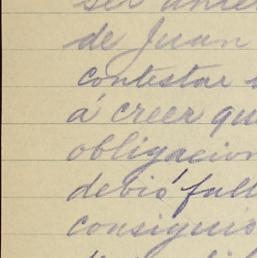 ser
de Juan
contestar
á creer qu
obligacion
debió fall
consiguió